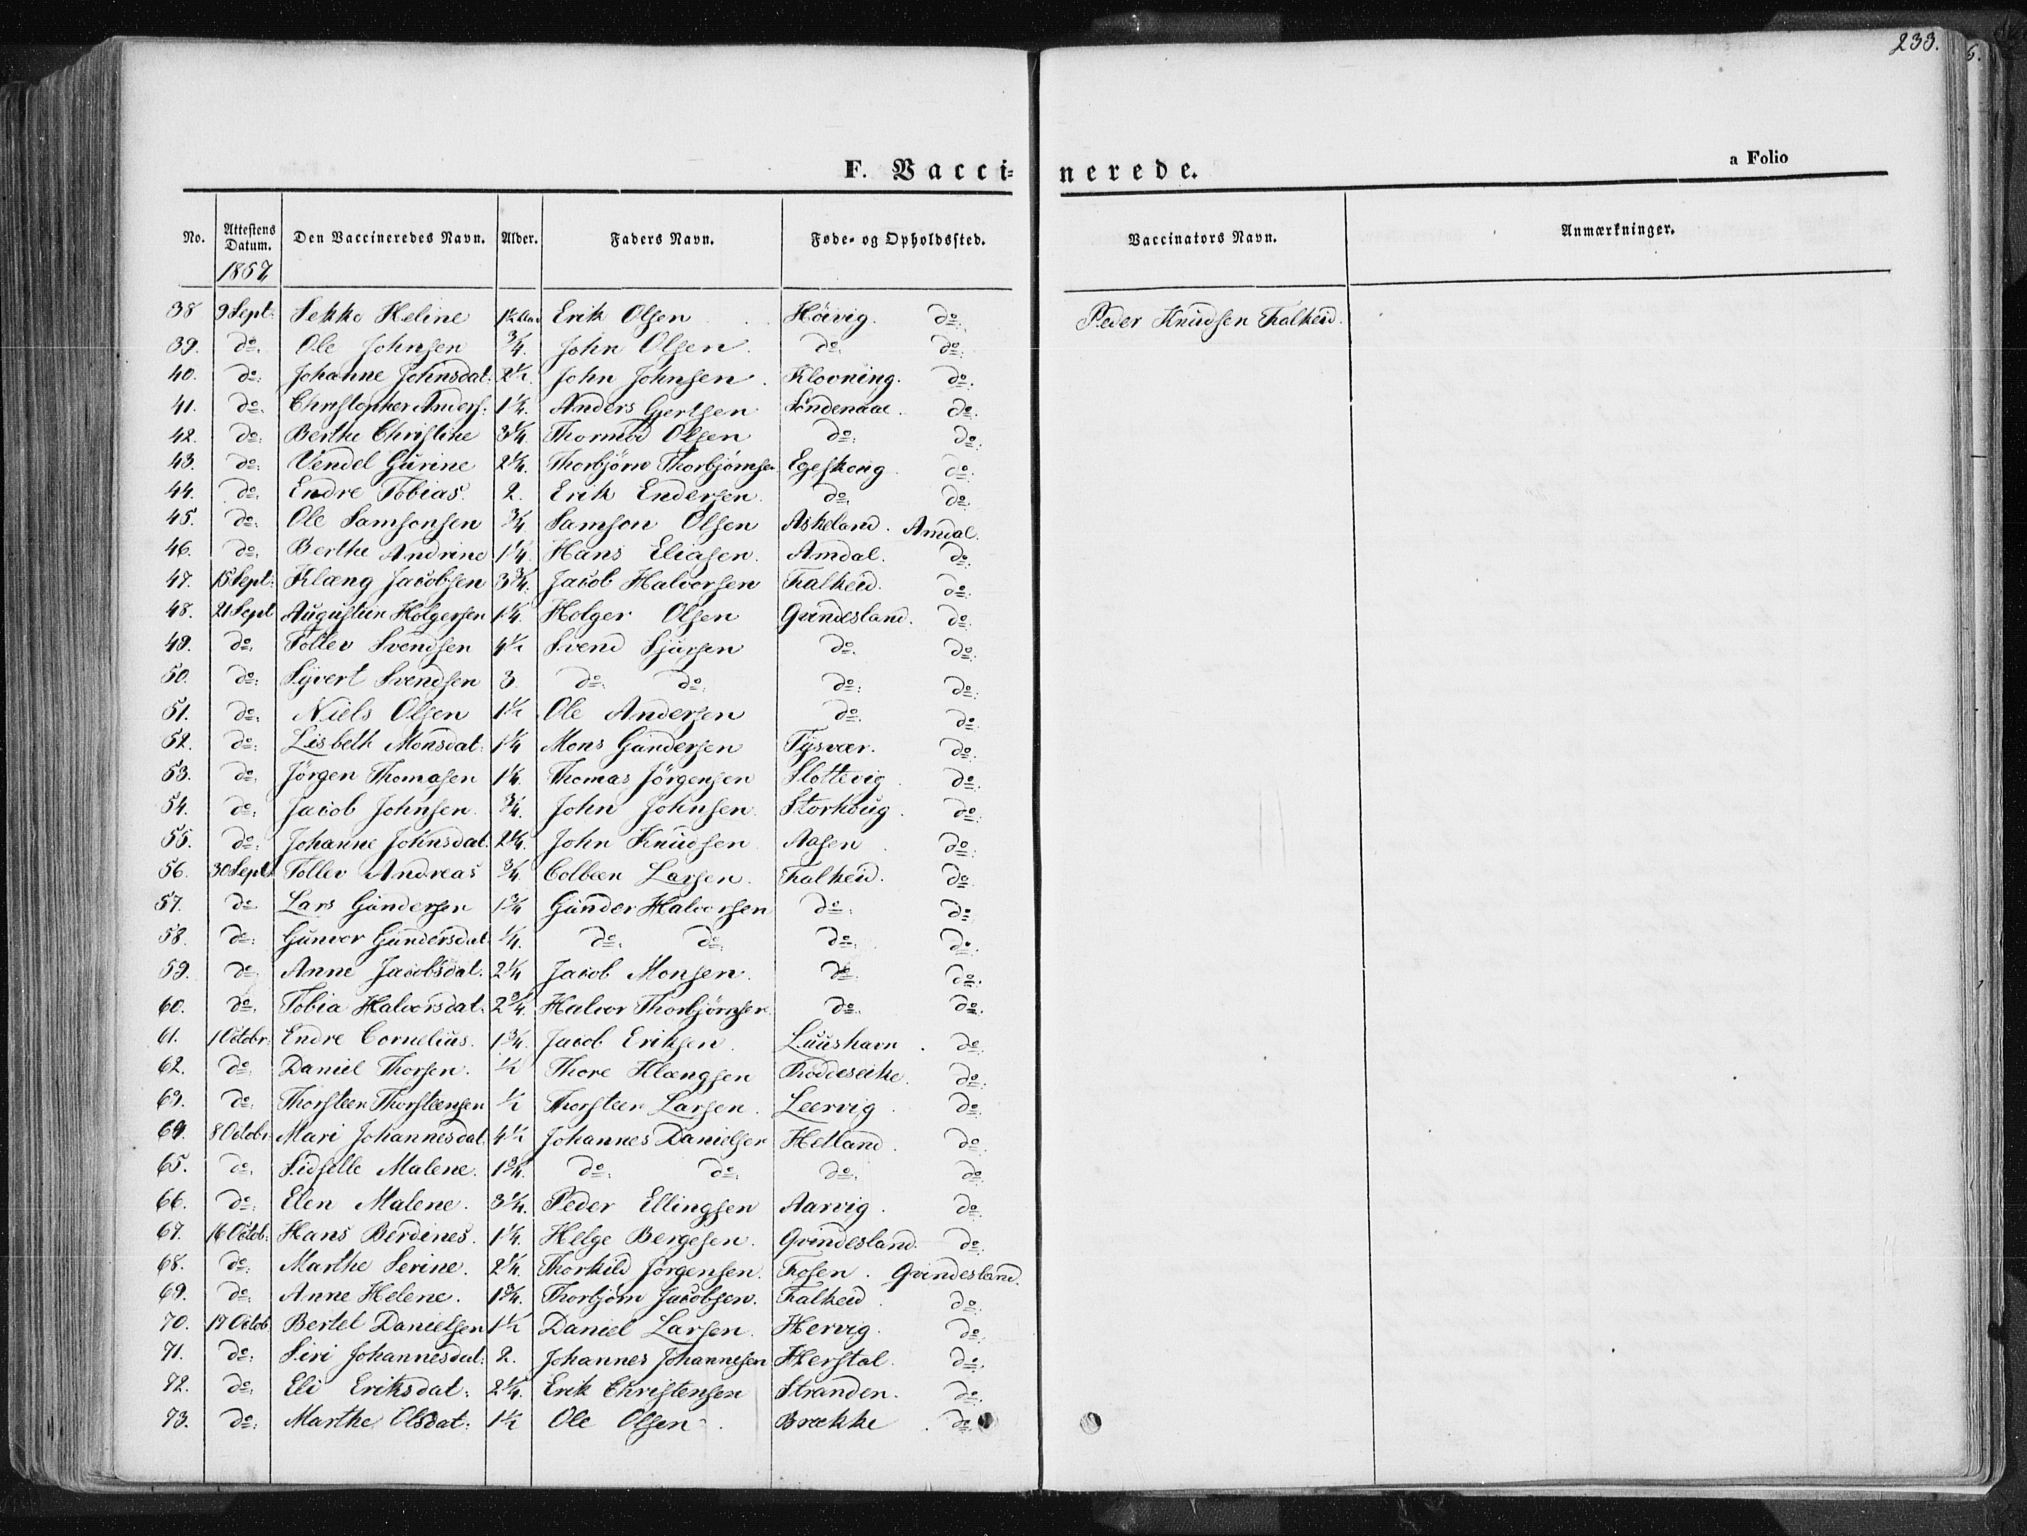 233.
F. Vacci-nerede.
a Folio
No. Attestens Datum. Den Vaccineredes Navn. Alder. Faders Navn. Føde- og Opholdssted. Vaccinators Navn. Anmærkninger.
1857
38 9 Sept: Sekke Heline 1½ Aar Erik Olsen Høivig. do. Peder Knudsen Falkeid.
39. do. Ole Johnsen ¾. John Olsen. do. do.
40. do: Johanne Johnsdat: 2½. John Johnsen. Klovning. do.
41. do. Christopher Anders: 1¼. Anders Gjertsen Søndenaae. do.
42. do: Berthe Christine 3¼ Thormod Olsen do: do.
43. do: Vendel Gurine 2¼. Thorbjørn Thorbjørnsen Egeskoug do:
44. do. Endre Tobias. 2. Erik Endersen. do. do.
45. do: Ole Samsonsen ¾ Samson Olsen Askeland. Amdal.
46. do. Berthe Andrine 1¼ Hans Eliasen. Amdal. do.
47. 15 Sept: Klæng Jacobsen 3¾. Jacob Halvorsen Falkeid. do:
48. 21 Sept Augustin Holgersen 1¼. Holger Olsen Qvindesland. do.
49. do. Tollev Svendsen 4½ Svend Sjursen do. do.
50. do: Syvert Svendsen 3. do: do: do: do:
51. do: Niels Olsen 1½ Ole Andersen do. do:
52. do: Lisbeth Monsdat: 1¼ Mons Gundersen Tysvær. do:
53. do: Jørgen Thomasen 1¼. Thomas Jørgensen Slottevig. do:
54. do: Jacob Johnsen ¾. John Johnsen. Storhoug. do:
55. do: Johanne Johnsdat. 2¼. John Knudsen Aasen. do:
56. 30 Sept Tollev Andreas ¾. Colbeen Larsen. Falkeid. do.
57. do Lars Gundersen 1¾ Gunder Halvorsen do: do:
58. do: Gunvor Gundersdat. ¼. do: do: do: do:
59. do: Anne Jacobsdat. 2¼ Jacob Monsen. do. do.
60. do. Tobia Halvorsdat: 2¾. Halvor Thorbjørnsen do. do.
61. 1 Octobr: Endre Cornelius. 1¾. Jacob Eriksen. Luushavn. do:
62. do. Daniel Thorsen. ½ Thore Klængsen Røddeseike. do:
63. do: Thorsteen Thorsteensen ½ Thorsteen Larsen. Leervig. do:
64. 8 Octobr Mari Johannesdat. 4½ Johannes Danielsen Hetland. do:
65. do. Sidselle Malene. 1¾. do: do: do: do.
66. do: Elen Malene. 3¼. Peder Ellingsen Aarvig. do.
67. 16 Octob: Hans Berdines. 1¼. Helge Bergesen. Qvindesland. do:
68. do: Marthe Serine. 2¼. Thorkild Jørgensen. Fosen. Qvindesland.
69. do: Anne Helene. 1¾. Thorbjørn Jacobsen. Falkeid. do:
70. 17 Octob Bertel Danielsen 1½ Daniel Larsen. Hervig. do:
71. do: Siri Johannesdat: 2. Johannes Johannesen Herstal. do:
72. do: Eli Eriksdat: 2¼. Erik Christensen Stranden. do.
73. do: Marthe Olsdat: 1½ Ole Olsen. Brække. do